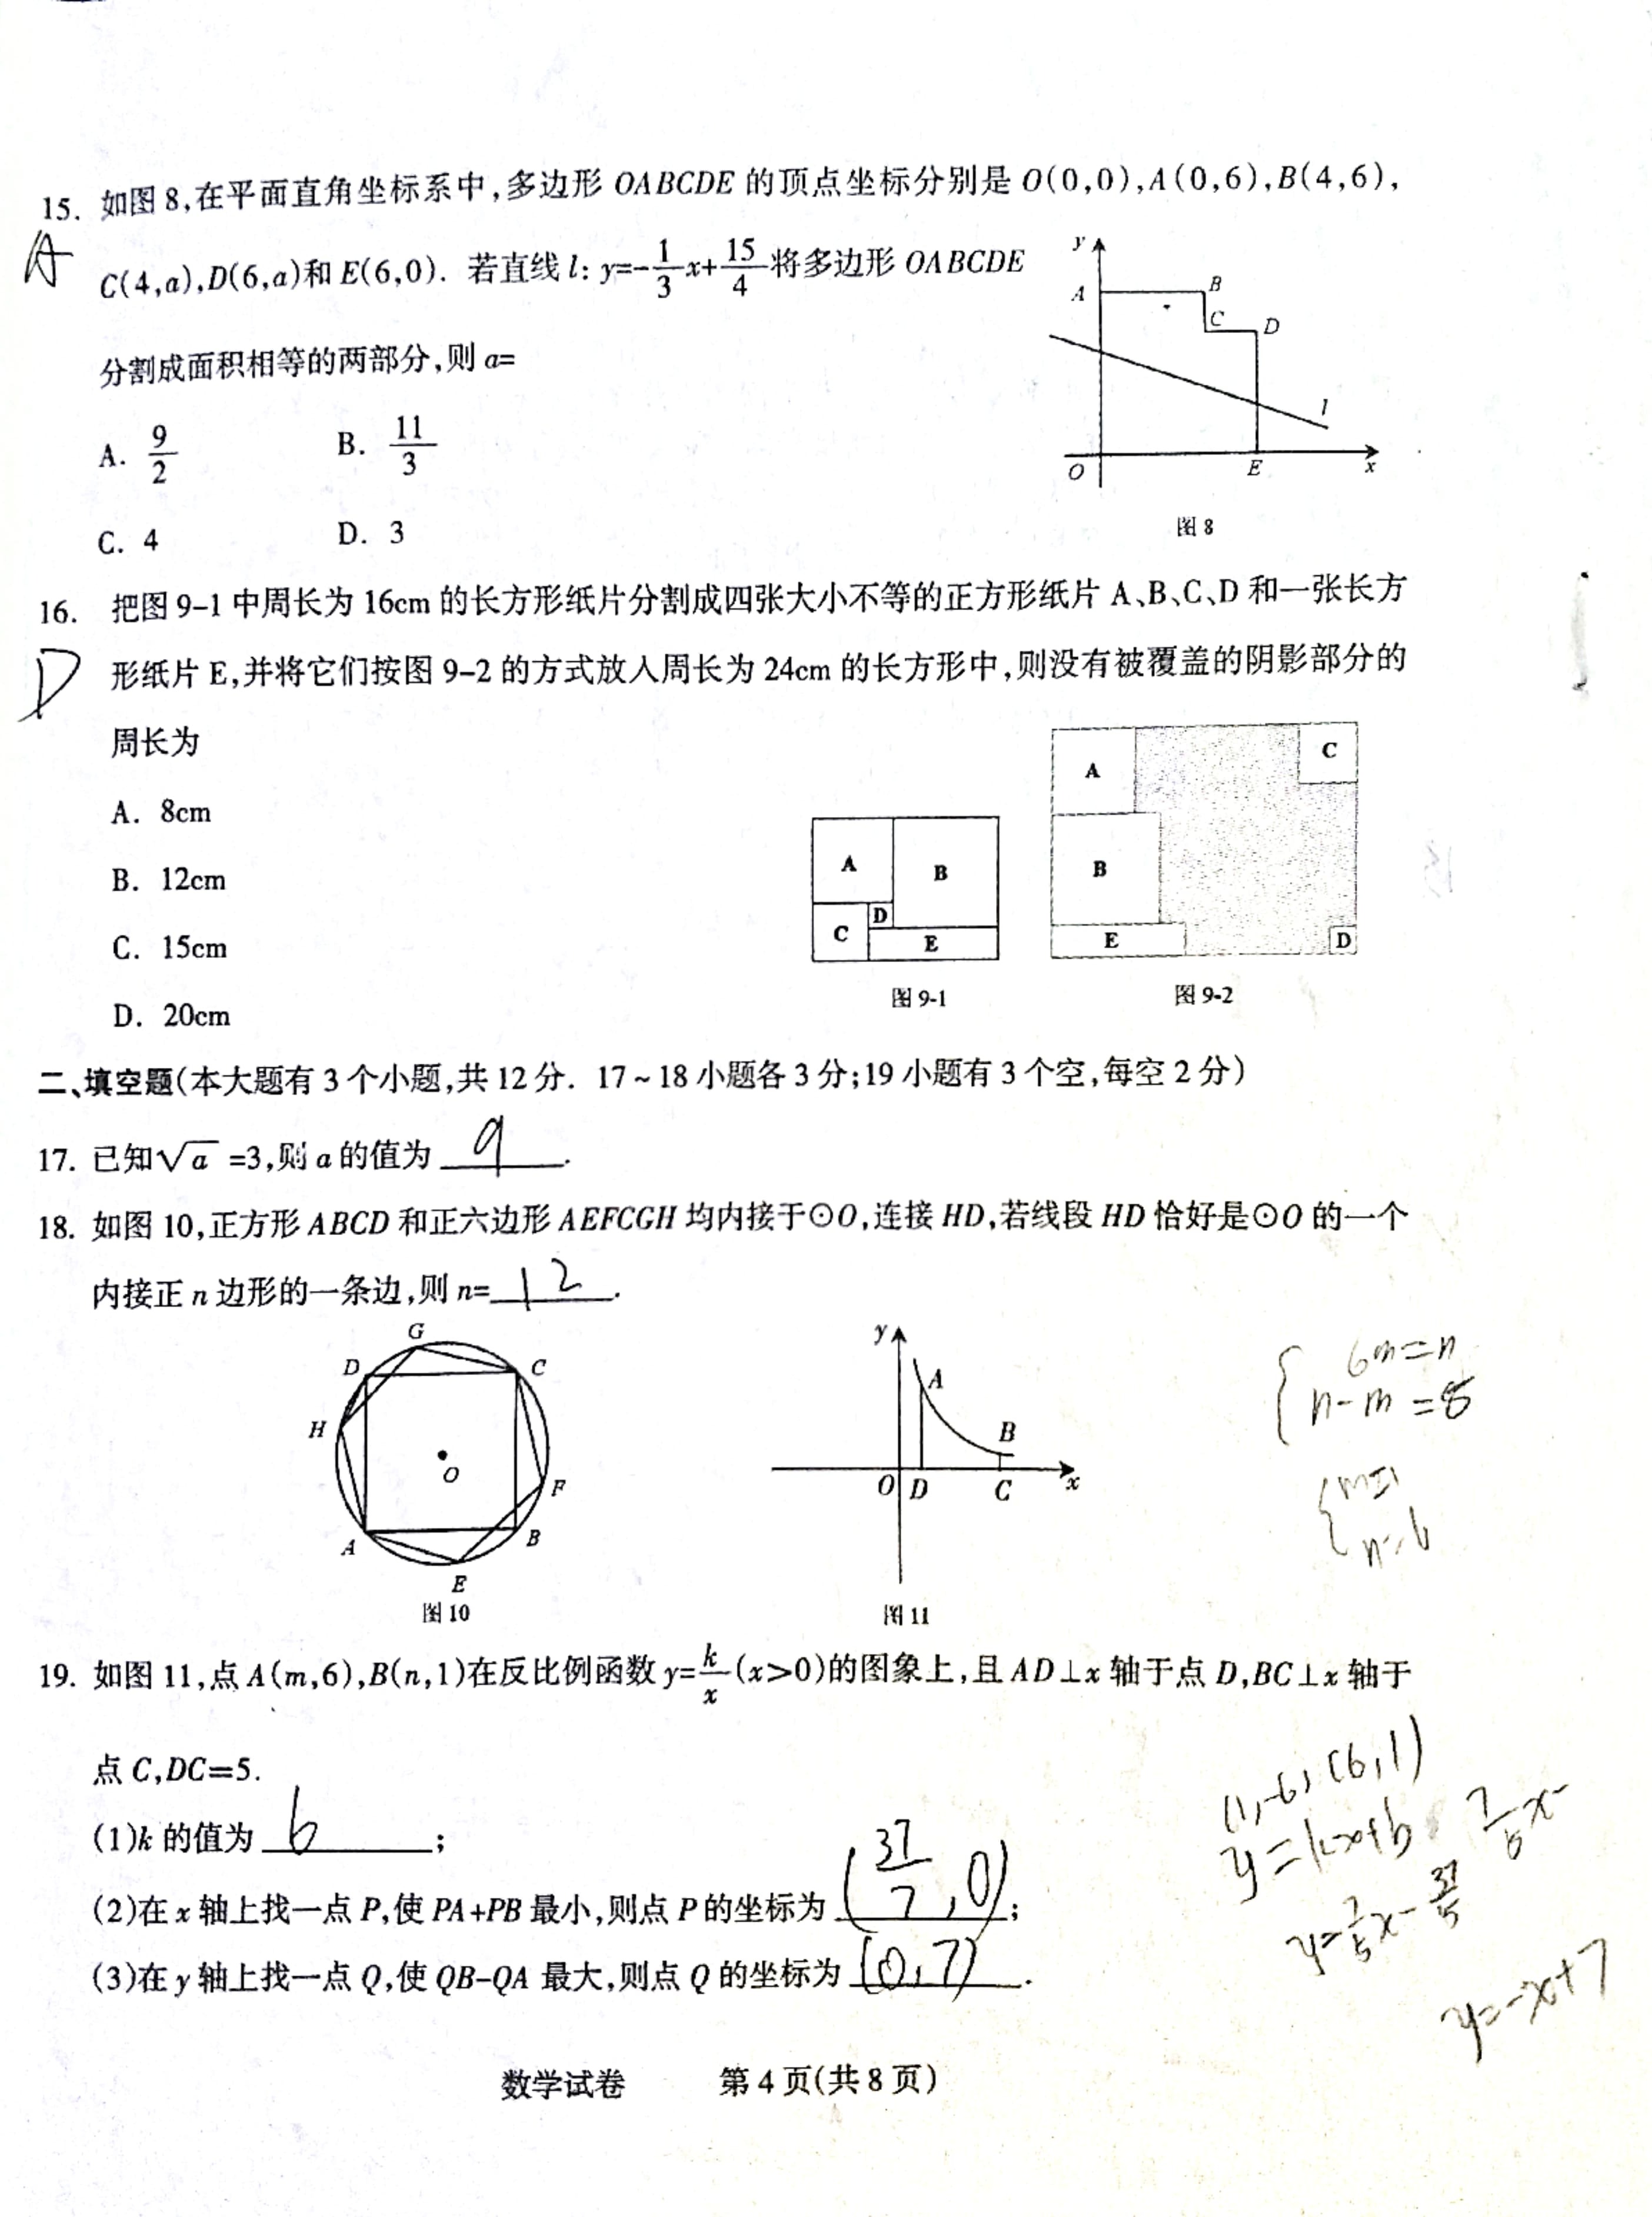 15. 如图8,在平面直角坐标系中,多边形OABCDE的顶点坐标分别是O(0,0),A(0,6),B(4,6),
A
C(4,a),D(6,a)和E(6,0). 若直线l: y=-1/3x+15/4将多边形OABCDE
分割成面积相等的两部分,则a=
A. 9/2 B. 11/3
C. 4 D. 3
y A B C D l O E x
图8
16. 把图9-1中周长为16cm的长方形纸片分割成四张大小不等的正方形纸片A、B、C、D和一张长方
D
形纸片E,并将它们按图9-2的方式放入周长为24cm的长方形中,则没有被覆盖的阴影部分的
周长为
A. 8cm
B. 12cm
C. 15cm
D. 20cm
A B C D E
图9-1
A C B E D
图9-2
二、填空题(本大题有3个小题,共12分. 17~18小题各3分;19小题有3个空,每空2分)
17. 已知√a=3,则a的值为 9 .
18. 如图10,正方形ABCD和正六边形AEFCGH均内接于⊙O,连接HD,若线段HD恰好是⊙O的一个
内接正n边形的一条边,则n= 12 .
G D C H O F A B E
图10
y A B O D C x
图11
6m=n
n-m=5
m=1
n=6
19. 如图11,点A(m,6),B(n,1)在反比例函数y=k/x(x>0)的图象上,且AD⊥x轴于点D,BC⊥x轴于
点C,DC=5.
(1)k的值为 6 ;
(2)在x轴上找一点P,使PA+PB最小,则点P的坐标为 (37/7,0) ;
(3)在y轴上找一点Q,使QB-QA最大,则点Q的坐标为 (0,7) .
(1,-6) (6,1)
y=kx+b
7/5x-
y=7/5x-37/5
y=-x+7
数学试卷 第4页(共8页)